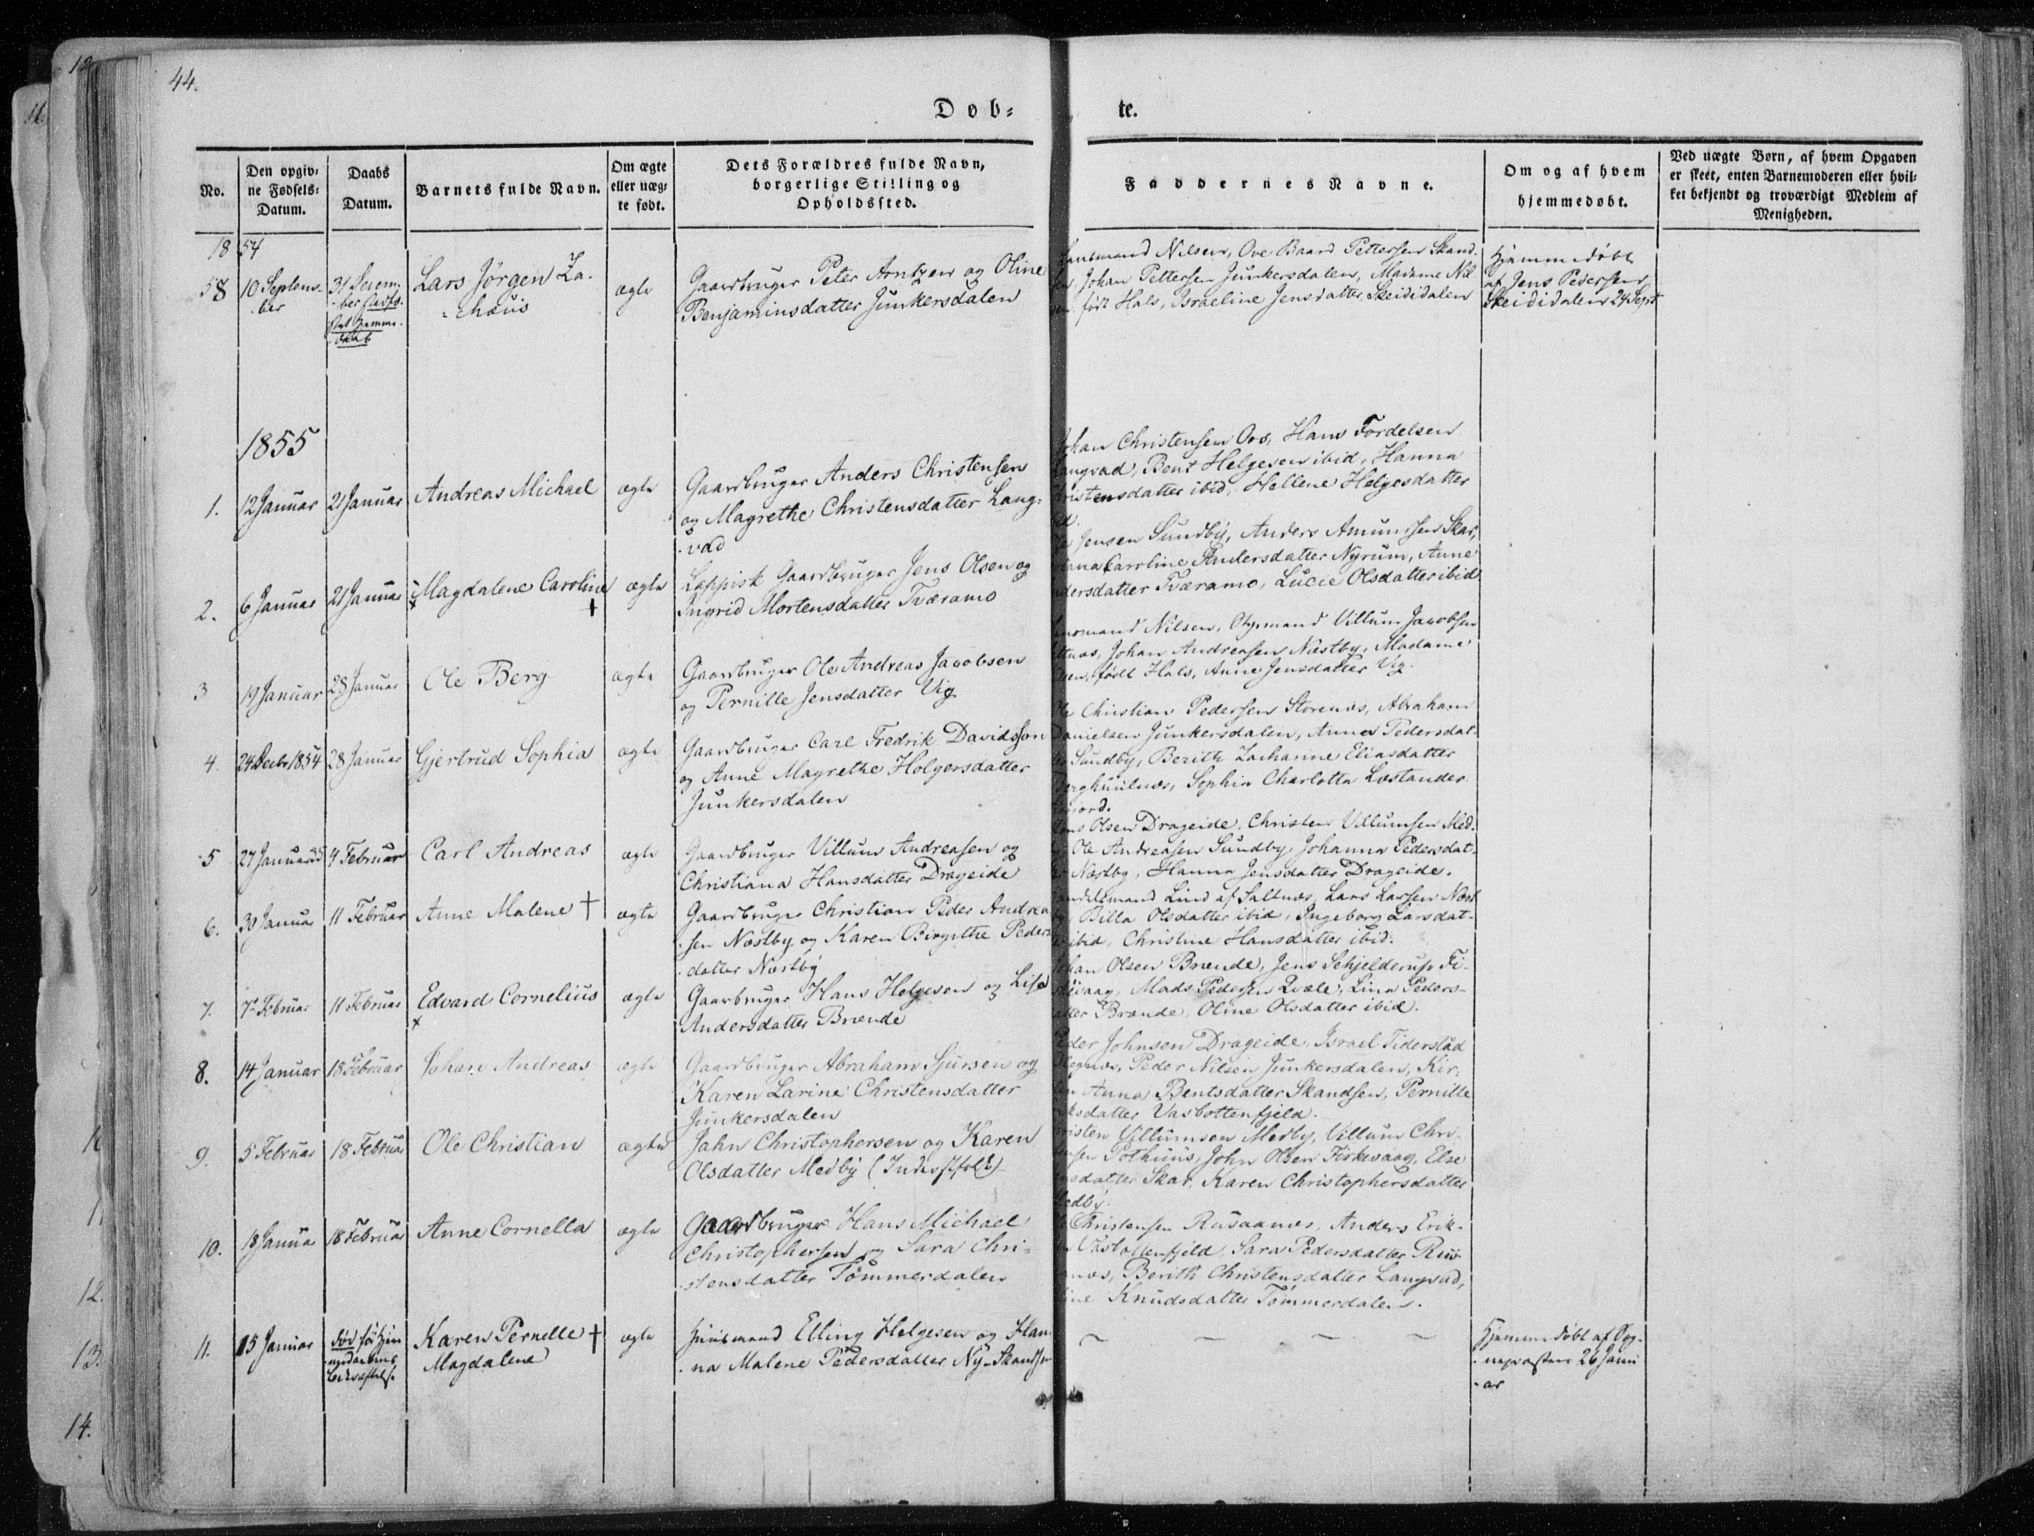 44.
Dob-
te.
No.
Den opgiv-
ne Fødsels-
Datum.
Daabs
Datum.
Barnets fulde Navn.
Om ægte
eller uæg-
te født.
Dets Forældres fulde Navn,
borgerlige Stilling og
Opholdssted.
Faddernes Navne.
Om og af hvem
hjemmedøbt.
Ved uægte Børn, af hvem Opgaven
er skeet, enten Barnemoderen eller hvil-
ket bekjendt og troværdigt Medlem af
Menigheden.
1854
58
10 Septem-
ber
31 Decem-
ber
Lars Jørgen Za-
chæus
ægte
Gaardbruger Peter Arntzen og Oline
Benjaminsdatter Junkersdalen
Lensmand Nilsen, Ove Baard Pettersen Skand-
sen, Johan Pettersen Junkersdalen, Madame Nil-
sen født Hals, Israeline Jensdatter Skeididalen
Hjemmedøbt
af Jens Pedersen
Skeididalen 24 Sept
1855
1.
12 Januar
21 Januar
Andreas Michael
ægte
Gaardbruger Anders Christensen
og Magrethe Christensdatter Lang-
vad
Johan Christensen Øvs, Hans Tordelsen
Langvad, Bent Helgesen ibid, Hanna
Christensdatter ibid, Hellene Helgesdatter
2.
6 Januar
21 Januar
Magdalene Caroline
+
ægte
Lappisk Gaardbruger Jens Olsen og
Ingrid Mortensdatter Tværamo
Jensen Sundby, Anders Amundsen Skar,
Caroline Andersdatter Nyrum, Anne
Andersdatter Tværamo, Lucie Olsdatter ibid
3
19 Januar
28 Januar
Ole Berg
ægte
Gaardbruger Ole Andreas Jacobsen
og Pernille Jensdatter Vig
Lensmand Nilsen, Villum Jacobsen
Johan Andreasen Næstby, Madame
Nilsen, født Hals, Anne Jensdatter Vig.
4.
24 Decbr 1854
28 Januar
Gjertrud Sophia
ægte
Gaardbruger Carl Fredrik Davidsson
og Anne Magrethe Holgersdatter
Junkersdalen
Ole Christian Pedersen Storenæs, Abraham
Danielsen Junkersdalen, Anne Pedersdat-
ter Sundby, Berith Zachanne Eliasdatter
Sophia Charlotta Læstander
5
27 Januar
4 Februar
Carl Andreas
ægte
Gaardbruger Villum Andreasen og
Christiana Hansdatter Drageide
Jens Olsen Drageide, Christen Villumsen Med-
by, Ole Andreasen Sundby, Johanna Pedersdat-
ter Næstby, Hanna Jensdatter Drageide.
6.
30 Januar
11 Februar
Anne Malene +
ægte
Gaardbruger Christian Peder Andrea-
sen Næstby og Karen Birgithe Peders-
datter Næstby
Handelsmand Lind af Saltnæs, Lars Larsen Næst-
by, Billa Olsdatter ibid, Ingeborg Larsdat-
ter ibid, Christine Hansdatter ibid.
7.
7 Februar
11 Februar
Edvard Cornelius
ægte
Gaarbruger Hans Helgesen og Lisa
Andersdatter Brænde
Johan Olsen Brænde, Jens Schjelderup Fi-
skevaag, Mads Pedersen Qvæle, Lina Peders-
datter Brænde, Oline Olsdatter ibid.
8.
14 Januar
18 Februar
Johan Andreas
ægte
Gaardbruger Abraham Sjursen og
Karen Larine Christensdatter
Junkersdalen
Peder Johnsen Drageide, Israel Tiderstad
Peder Nilsen Junkersdalen, Kir-
Anna Bentsdatter Skandsen, Pernille
Vasbottenfjeld.
9.
5 Februar
18 Februar
Ole Christian
ægte
Jahn Christophersen og Karen
Olsdatter Medby (Inderstfolk)
Christen Villumsen Medby, Villum Chri-
stensen Pothuus, John Olsen Fiskevaag, Else
Skar, Karen Christophersdatter
Medby.
10.
18 Januar
18 Februar
Anne Cornella
ægte
Gaardbruger Hans Michael
Christophersen og Sara Chri-
stensdatter Tømmerdalen
Christensen Rusaanæs, Anders Erik-
sen Vasbottenfjeld, Sara Pedersdatter Rus-
aanæs, Berith Christensdatter Langvad,
Knudsdatter Tømmerdalen.
11.
15 Januar
Død før Hjem-
medaabens
bekræftelse
Karen Pernelle +
Magdalene
ægte
Huusmand Elling Helgesen og Han-
na Malene Pedersdatter Ny-Skandsen
Hjemmedøbt af Sog-
nepræsten 26 Janu-
ar
12.
13.
14.